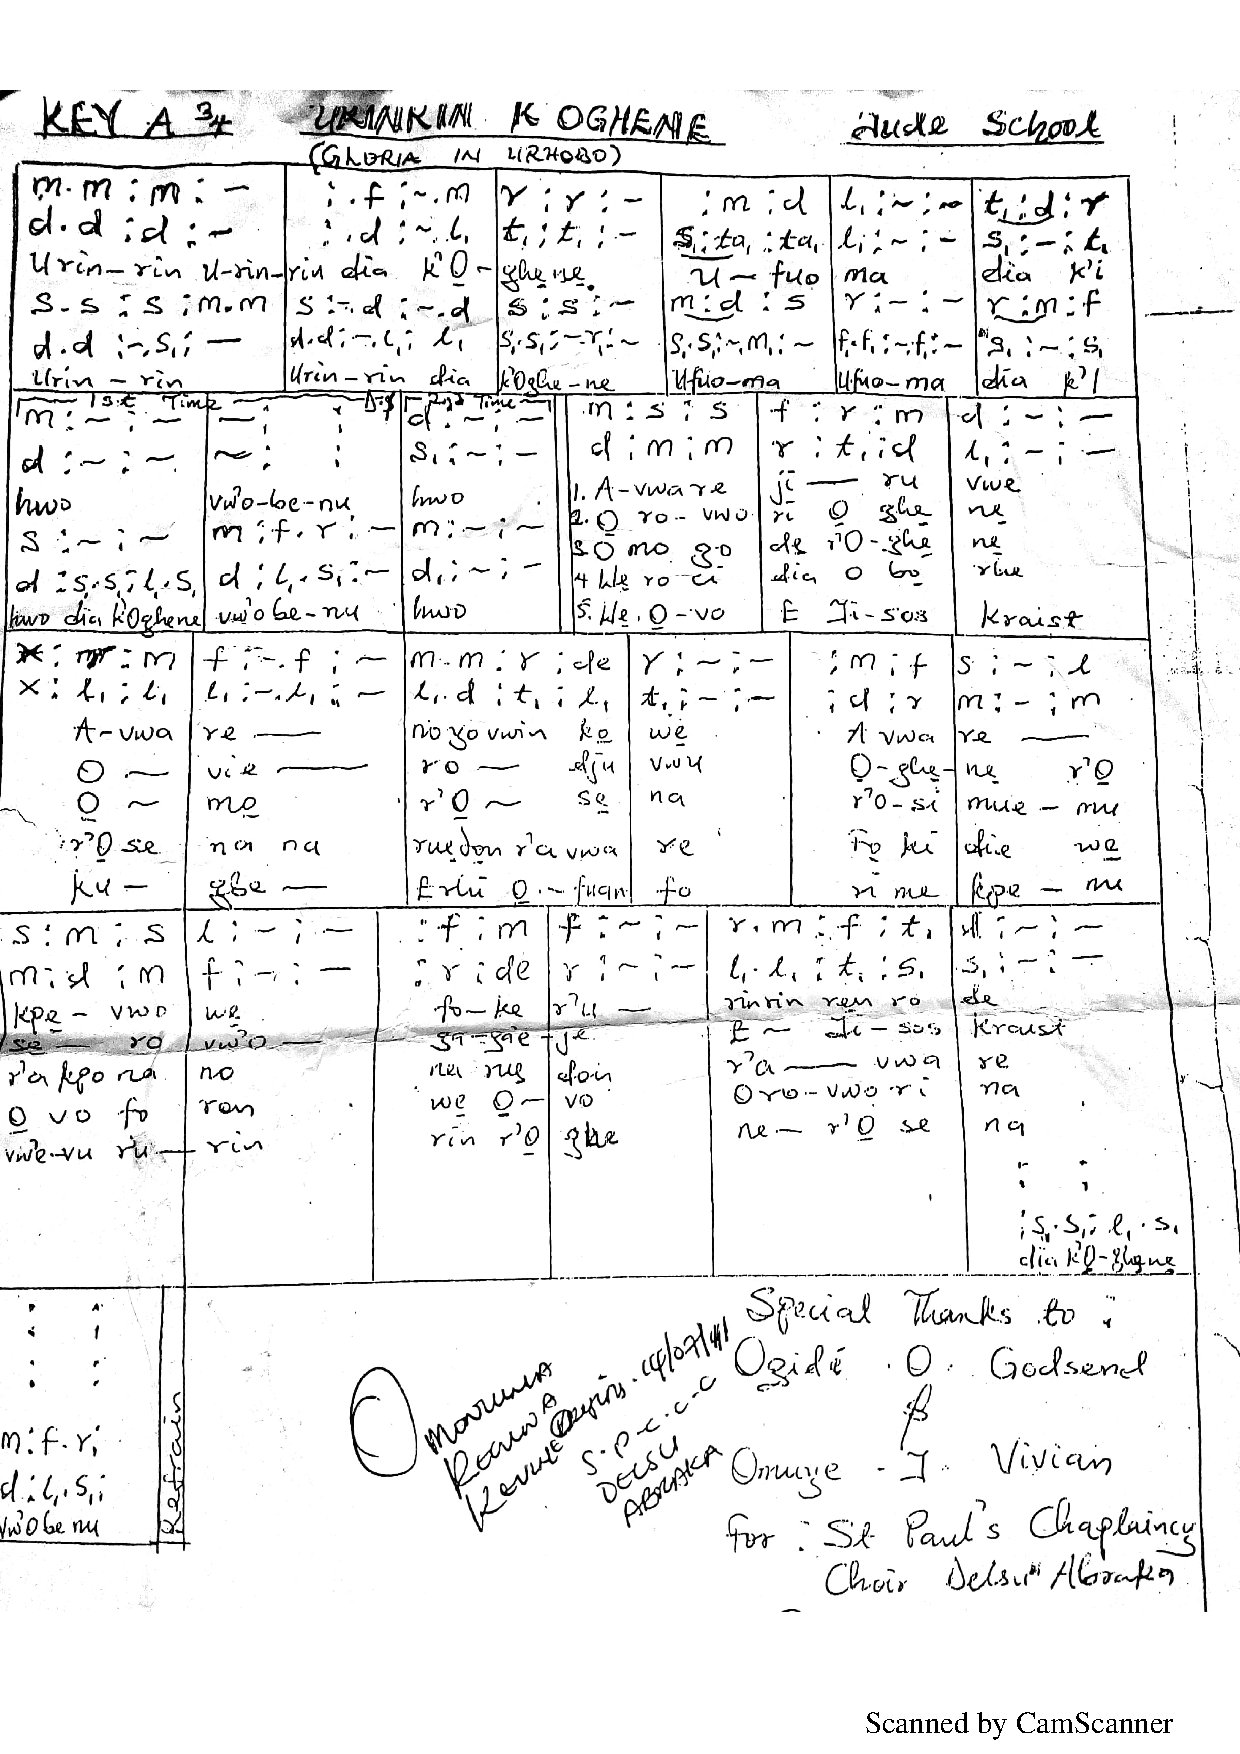 KEY A 3/4 URINRIN K OGHENE Jude School
(GLORIA IN URHOBO)
m.m : m : – : .f : –.m r : r : – : m : d l₁ : – : – t₁ : d : r
d.d : d : – : .d : –.l₁ t₁ : t₁ : – s₁ : ta₁ : ta₁ l₁ : – : – s₁ : – : t₁
Urin–rin U–rin–rin dia k'O̱–ghe̱ne̱. U – fuo ma dia k'i
s.s : s : m.m s : –.d : –.d s : s : – m : d : s r : – : – r : m : f
d.d : –.s₁ : – d.d : –.l₁ : l₁ s₁.s₁ : –.r₁ : – s₁.s₁ : –.m₁ : – f₁.f₁ : –.f₁ : – s₁ : – : s₁
Urin – rin Urin–rin dia k'Oghe–ne Ufuo–ma Ufuo–ma dia k'i
1st Time 2nd Time
m : – : – – : : d : – : – m : s : s f : r : m d : – : –
d : – : – – : : s₁ : – : – d : m : m r : t₁ : d l₁ : – : –
hwo vwo–be–nu hwo 1. A–vwa re ji — ru vwe
2. O̱ ro–vwo ri O̱ ghe̱ ne̱
s : – : – m : f.r : – m : – : – 3 O mo go de r'O–ghe̱ ne̱
d : s₁.s₁ : l₁.s₁ d : l₁.s₁ : – d₁ : – : – 4 We̱ ro ci dia o bo rhe
hwo dia k'Oghene vwobe–nu hwo 5. We. O̱–vo E Ji–sos Kraist
x : m : m f : –.f : – m.m : r : de r : – : – : m : f s : – : l
x : l₁ : l₁ l₁ : –.l₁ : – l₁.d : t₁ : l₁ t₁ : – : – : d : r m : – : m
A–vwa re — no yo vwin ko̱ we̱ A vwa re —
O̱ – vie — ro – dju vwu O̱–ghe̱– ne̱ r'O̱
O̱ – mo̱ r'O̱ – se̱ na r'o–si mue – mu
r'O̱ se na na rue̱don r'a vwa re Fo̱ ki die we̱
ku – gbe — Erhi O̱ – fuan fo ri me kpe – nu
s : m : s l : – : – : f : m f : – : – r.m : f : t₁ d : – : –
m : d : m f : – : – : r : de r : – : – l₁.l₁ : t₁ : s₁ s₁ : – : –
kpe̱ – vwo we̱ fo–ke̱ r'u — rinrin ren ro de
se — ro vwo — ga–gae–je E – Ji–sos Kraist
r'a kpo na no na rue̱ don r'a — vwa re
O̱ vo fo ron we̱ O̱– vo Oro–vwo ri na
vwe–vu ru — rin rin r'O̱ ghe ne — r'O̱ se na
: s₁.s₁ : l₁.s₁
dia k'O̱–ghe̱ne̱
m : f.r :
d : l₁.s₁ :
vwobe nu
Refrain
Special Thanks to :
Ogidi . O. Godsend
&
Omuye . I. Vivian
for : St Paul's Chaplaincy
Choir Delsu Abraka
S.P.C.C.C
DELSU
ABRAKA
Scanned by CamScanner